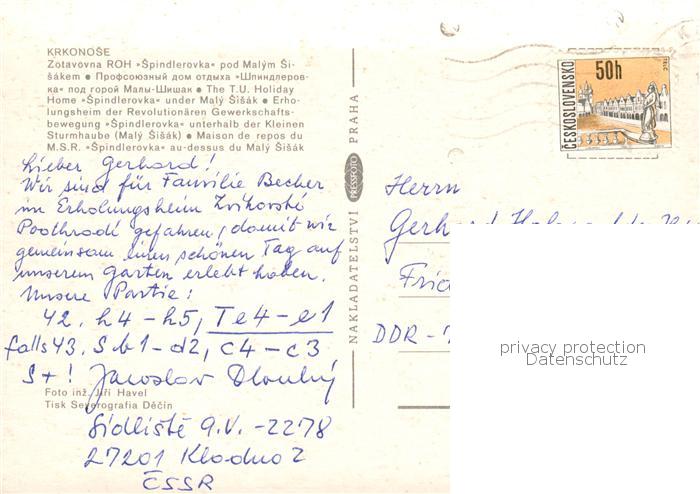 KRKONOŠE
Zotavovna ROH »Špindlerovka« pod Malým Ši-
šákem ● Профсоюзный дом отдыха »Шпиндлеров-
ка« под горой Малы-Шишак ● The T.U. Holiday
Home »Špindlerovka« under Malý Šišák ● Erho-
lungsheim der Revolutionären Gewerkschafts-
bewegung »Špindlerovka« unterhalb der Kleinen
Sturmhaube (Malý Šišák) ● Maison de repos du
M.S.R. »Špindlerovka« au-dessus du Malý Šišák
Lieber Gerhard!
Wir sind für Familie Becher
im Erholungsheim Zvíkovské
Podhradí gefahren, damit wir
gemeinsam einen schönen Tag auf
unserem Garten erlebt haben.
Unsere Partie:
42. h4 – h5, Te4 – e1
falls 43. Sb1 – d2, c4 – c3
S+! Jaroslav Dlouhý
Foto inž. Jiří Havel
Tisk Severografia Děčín
Sídliště 9.V. – 2278
27201 Kladno 2
ČSSR
NAKLADATELSTVÍ PRESSFOTO PRAHA
ČESKOSLOVENSKO
50h
TELČ
Herrn
Gerhard
DDR –
privacy protection
Datenschutz